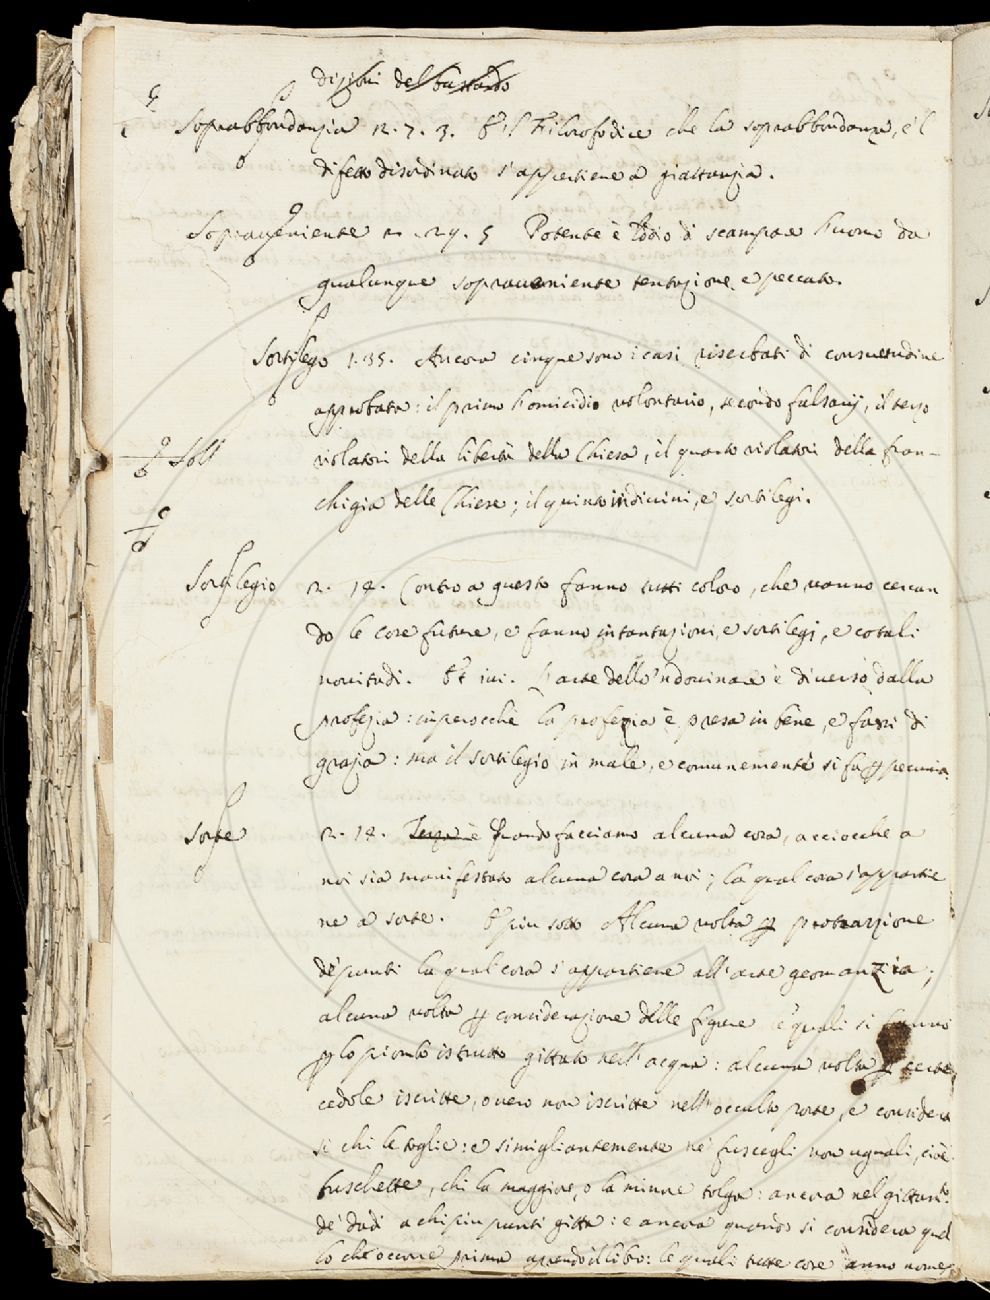 dizioni del bastardo
Soprabbondanzia 2. 7. 3. Et il Filosofo dice che la soprabbondanza, e'l
difetto disordinato s'appertiene a giattanzia.
Sopraveniente 2. 29. 5 Potente è Iddio di scampare huomo da
qualunque sopraveniente tentazione, e peccato.
Sortilego 1. 35. Ancora cinque sono i casi riserbati di consuetudine
approbata: il primo homicidio volontario, secondo falsarij, il terzo
violatori della libertà della Chiesa, il quarto violatori della fran-
Soll
chigia delle Chiese; il quinto indivini, e sortilegi.
Sortilegio 2. 14. Contro a questo fanno tutti coloro, che vanno cercan
do le cose future, e fanno incantazioni, e sortilegj, e cotali
novitadi. Et ivi. L'arte dello 'ndovinare è diversa dalla
profezia: imperocchè la profezia è presa in bene, e fassi di
grazia: ma il sortilegio in male, e comunemente si fa p pecunia.
Sorte 2. 14. Terza è Quando facciamo alcuna cosa, acciocche a
noi sia manifestato alcuna cosa a noi; la qual cosa s'appartie
ne a sorte. Et piu sotto Alcuna volta p protrazzione
de' punti la qual cosa s'appartiene all'arte geomanzia;
alcuna volta p considerazione delle figure le quali si fanno
p lo piombo istrutto gittato nell'acqua: alcuna volta p certe
cedole iscritte, overo non iscritte nell'occulto poste, e considera
si chi le toglie: e simigliantemente ne' fuscegli non uguali, cioè
buschette, chi la maggiore, o la minore tolga: ancora nel gittare
de' dadi a chi piu punti gitta: e ancora quando si considera quel
lo che occorre prima aprendo il libro: le quali tutte cose anno nome